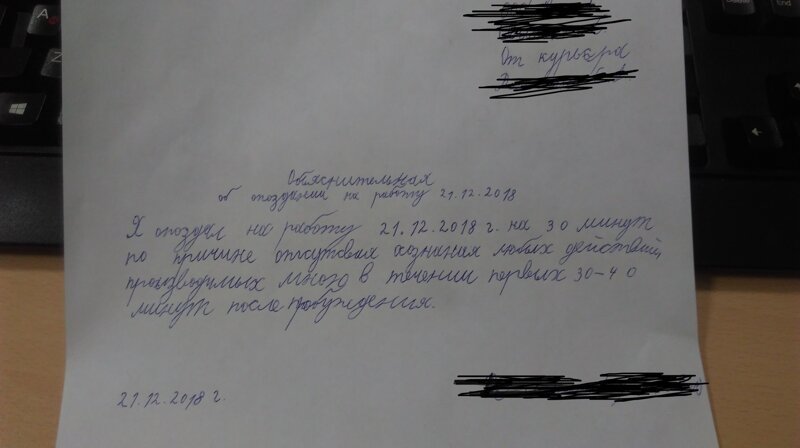 От курьера
Объяснительная
об опоздании на работу 21.12.2018
Я опоздал на работу 21.12.2018 г. на 30 минут
по причине отсутвия осознания любых действий,
производимых мною в течении первых 30-40
минут после пробуждения.
21.12.2018 г.
A
Z